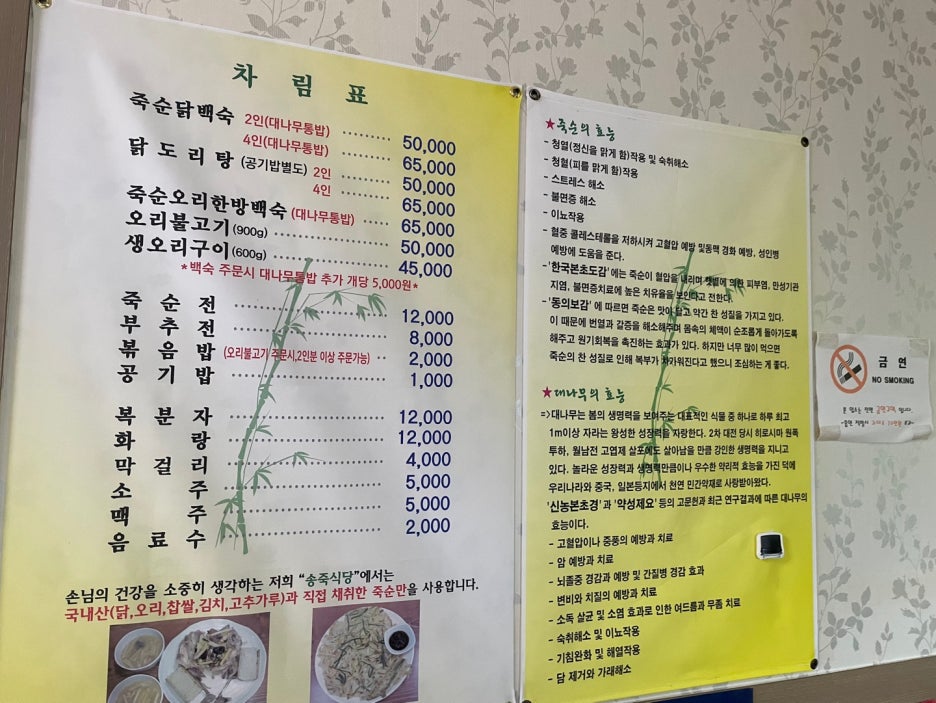 차 림 표
죽순닭백숙 2인(대나무통밥) 50,000
4인(대나무통밥) 65,000
닭도리탕 (공기밥별도) 2인 50,000
4인 65,000
죽순오리한방백숙 (대나무통밥) 65,000
오리불고기 (900g) 50,000
생오리구이 (600g) 45,000
*백숙 주문시 대나무통밥 추가 개당 5,000원*
죽순전 12,000
부추전 8,000
볶음밥 (오리불고기 주문시,2인분 이상 주문가능) 2,000
공기밥 1,000
복분자 12,000
화랑 12,000
막걸리 4,000
소주 5,000
맥주 5,000
음료수 2,000
손님의 건강을 소중히 생각하는 저희 "송죽식당"에서는
국내산(닭,오리,찹쌀,김치,고추가루)과 직접 채취한 죽순만을 사용합니다.
★죽순의 효능
- 청열(정신을 맑게 함)작용 및 숙취해소
- 청혈(피를 맑게 함)작용
- 스트레스 해소
- 불면증 해소
- 이뇨작용
- 혈중 콜레스테롤을 저하시켜 고혈압 예방 및동맥 경화 예방, 성인병
예방에 도움을 준다.
- '한국본초도감'에는 죽순이 혈압을 내리며 햇볕에 의한 피부염, 만성기관
지염, 불면증치료에 높은 치유율을 보인다고 전한다.
- '동의보감'에 따르면 죽순은 맛이 달고 약간 찬 성질을 가지고 있다.
이 때문에 번열과 갈증을 해소해주며 몸속의 체액이 순조롭게 돌아가도록
해주고 원기회복을 촉진하는 효과가 있다. 하지만 너무 많이 먹으면
죽순의 찬 성질로 인해 복부가 차가워진다고 했으니 조심하는 게 좋다.
★대나무의 효능
=>대나무는 봄의 생명력을 보여주는 대표적인 식물 중 하나로 하루 최고
1m이상 자라는 왕성한 성장력을 자랑한다. 2차 대전 당시 히로시마 원폭
투하, 월남전 고엽제 살포에도 살아남을 만큼 강인한 생명력을 지니고
있다. 놀라운 성장력과 생명력만큼이나 우수한 약리적 효능을 가진 덕에
우리나라와 중국, 일본등지에서 천연 민간약재로 사랑받아왔다.
'신농본초경'과 '약성제요' 등의 고문헌과 최근 연구결과에 따른 대나무의
효능이다.
- 고혈압이나 중풍의 예방과 치료
- 암 예방과 치료
- 뇌졸중 경감과 예방 및 간질병 경감 효과
- 변비와 치질의 예방과 치료
- 소독 살균 및 소염 효과로 인한 여드름과 무좀 치료
- 숙취해소 및 이뇨작용
- 기침완화 및 해열작용
- 담 제거와 가래해소
금 연
NO SMOKING